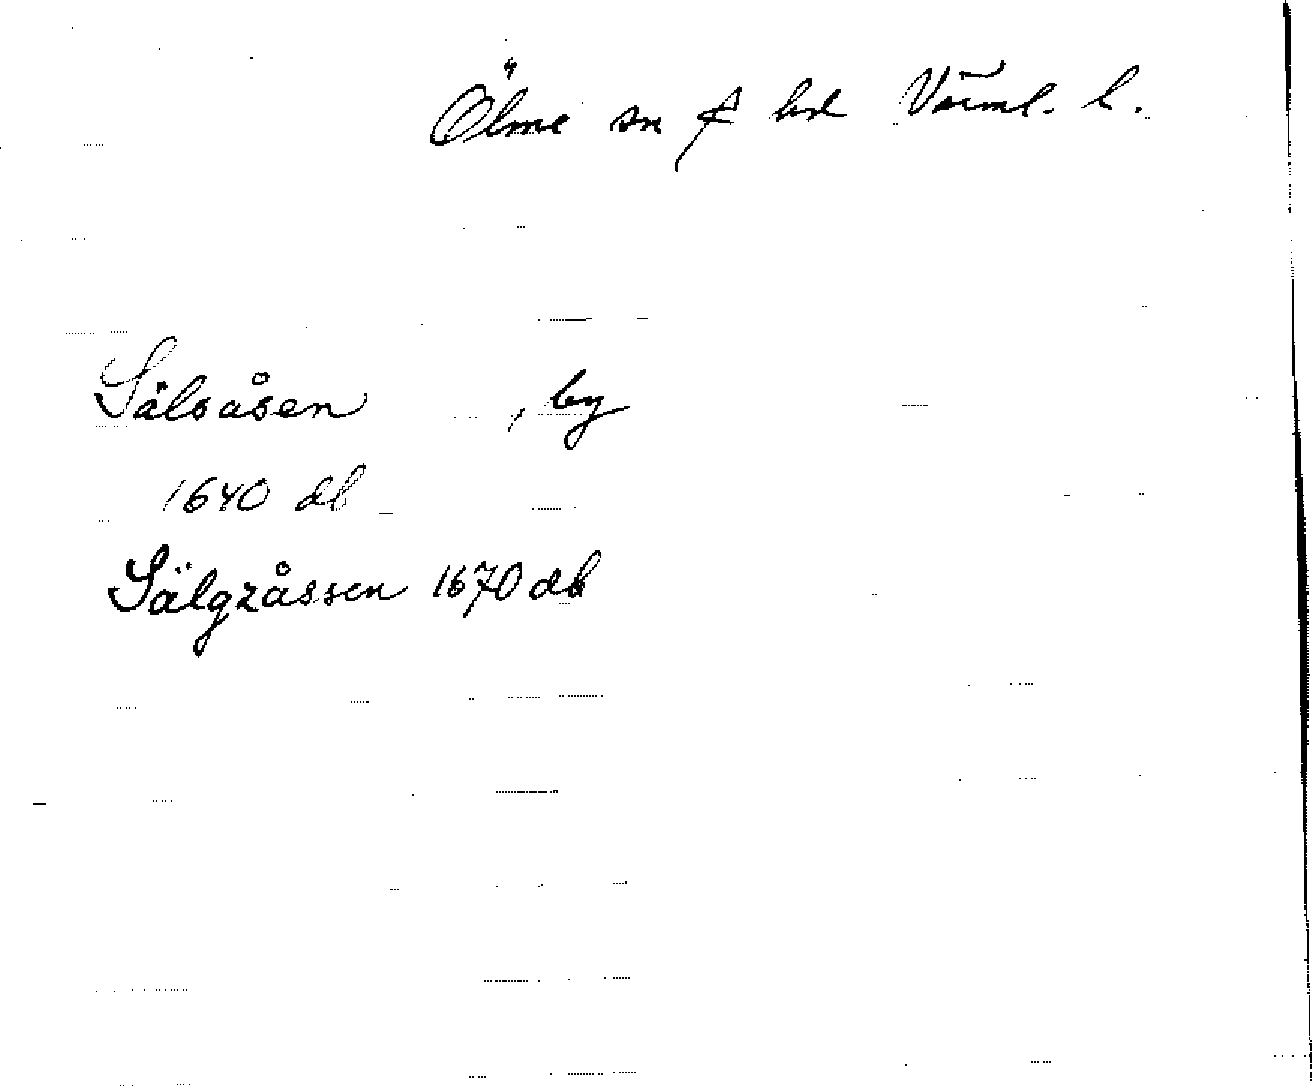 Ölme sn & hd Värml. l.
Sälsåsen , by
1640 db
Sälgzåssen 1670 db